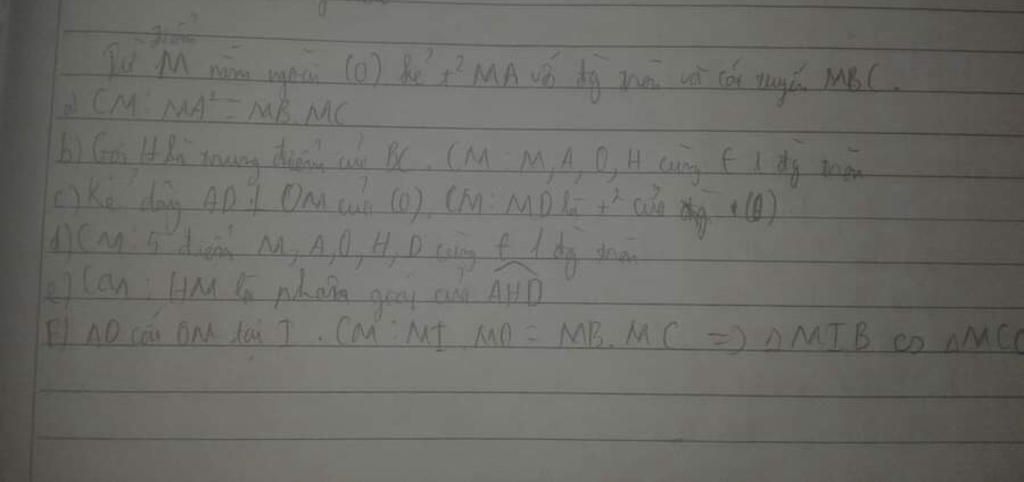 điểm
Từ M nằm ngoài (O) kẻ t² MA với đg tròn và cát tuyến MBC.
a) CM: MA² = MB.MC
b) Gọi H là trung điểm của BC. CM: M, A, O, H cùng € 1 đg tròn
c) Kẻ dây AD ⊥ OM của (O). CM: MD là t² của (O)
d) CM: 5 điểm M, A, O, H, D cùng € 1 đg tròn
e) Cm: HM là phân giác của AHD
F) AD cắt OM tại I. CM: MI.MO = MB.MC => △MIB ∽ △MCO